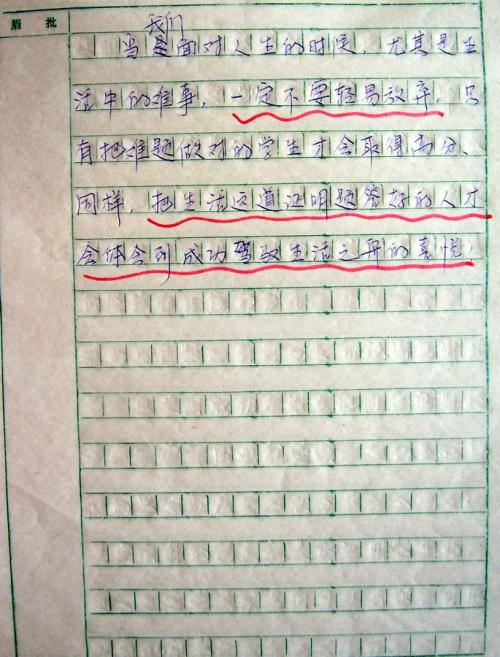 眉 批
我们
当面对人生的时候，尤其是生
活中的难事，一定不要轻易放弃。只
有把难题做对的学生才会取得高分、
同样，把生活这道证明题答好的人才
会体会到成功驾驭生活之舟的喜悦。